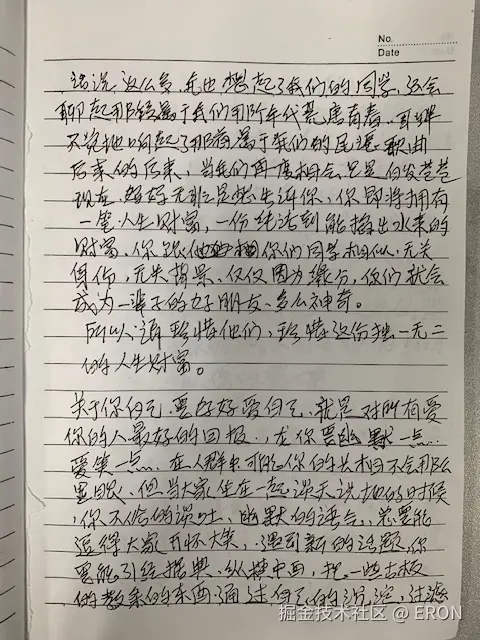 No.
Date
话说这么多,我也想起了我们的同学,还会
聊起那段属于我们那个年代的青春,耳畔
不觉地响起了那首属于我们的民谣歌曲
后来的后来,当我们再度相会已是白发苍苍
现在,爸妈无非是想告诉你,你即将拥有
一笔人生财富,一份纯洁到能掐出水来的
财富,你跟你们同学相似,无关
身份,无关背景,仅仅因为缘分,你们就会
成为一辈子的好朋友,多么神奇。
所以请珍惜他们,珍惜这份独一无二
的人生财富。
关于你自己,要好好爱自己,就是对所有爱
你的人最好的回报,,在你要幽默一点…
爱笑一点…在人群中可能你的长相不会那么
显眼,但当大家坐在一起谈天说地的时候
,你不俗的谈吐,幽默的语言,总要能
逗得大家开怀大笑,遇到新的话题,你
要能引经据典,纵横中西,把一些古板
的教条的东西通过自己的沉淀,过滤
掘金技术社区 @ ERON